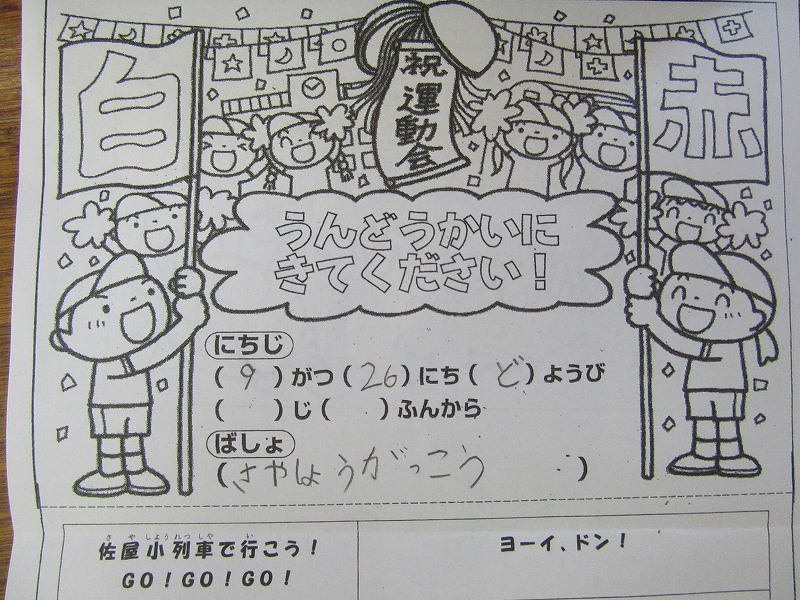 白
祝運動会
赤
うんどうかいに
きてください！
にちじ
( 9 )がつ( 26 )にち( ど )ようび
( )じ( )ふんから
ばしょ
( さやしょうがっこう )
さやしょうれつしゃい
佐屋小列車で行こう！
GO！GO！GO！
ヨーイ、ドン！